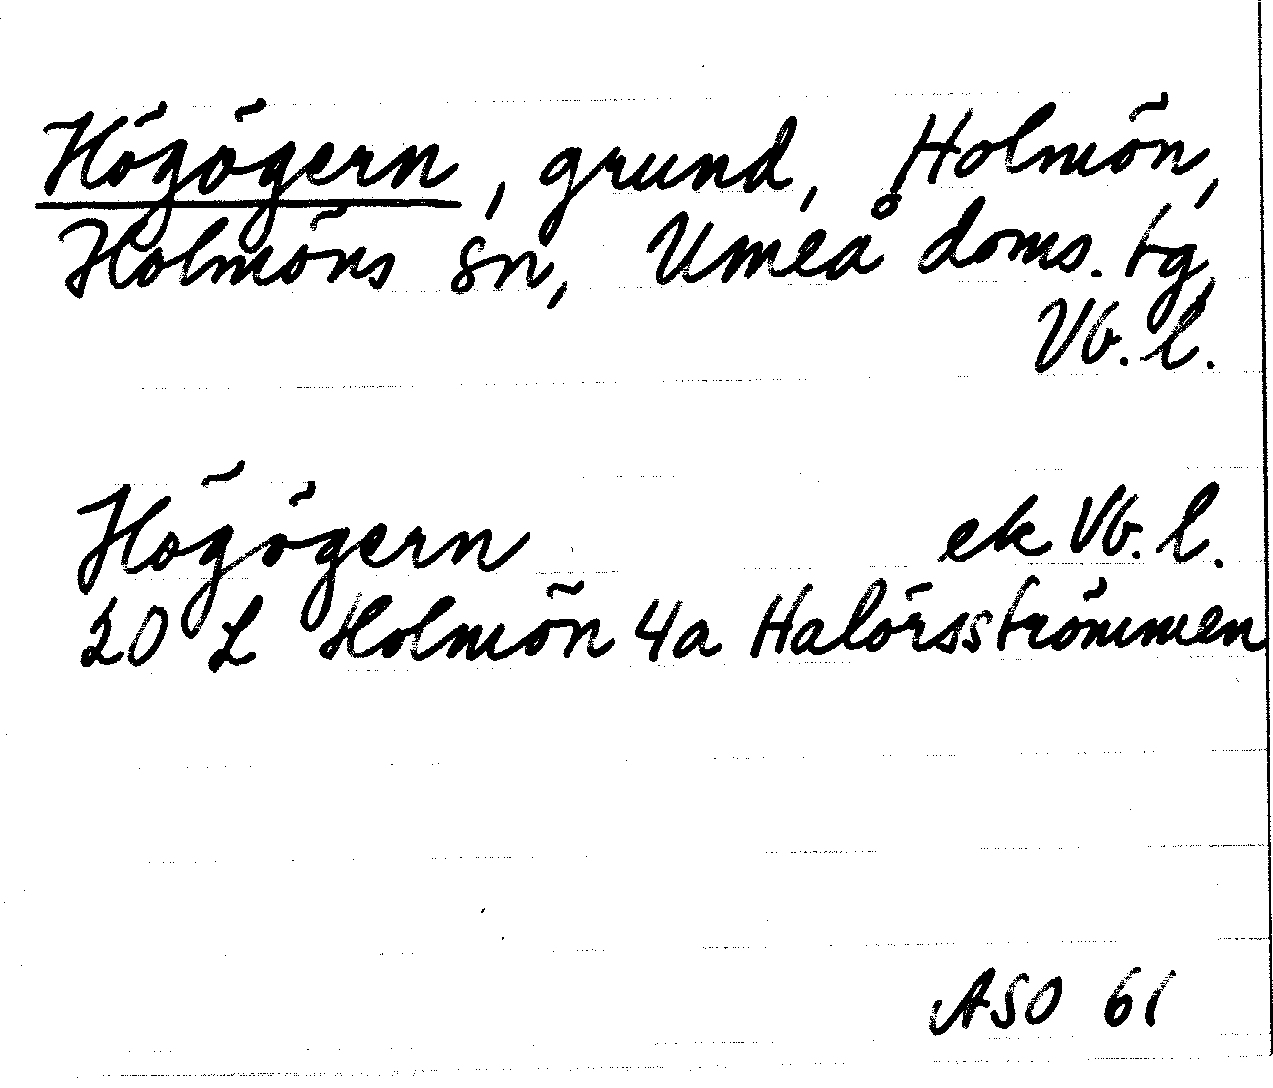 Högögern, grund, Holmön,
Holmöns sn, Umeå doms. tg,
Vb. l.
Högögern ek Vb. l.
20 L Holmön 4a Halörsströmmen
ASO 61